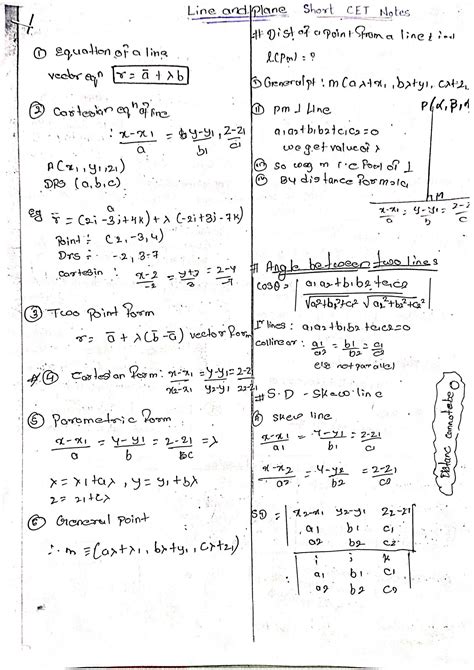 Line and plane Short CET Notes
① Equation of a line
vector eqⁿ r̄ = ā + λb
② Cartesian eqⁿ of line
: x-x₁/a = y-y₁/b₁, z-z₁/c₁
A(x₁, y₁, z₁)
DRS (a, b, c)
eg r̄ = (2i - 3j + 4k) + λ (-2i + 3j - 7k)
Point : (2, -3, 4)
Drs : -2, 3, -7
Cartesin : x-2/-2 = y+3/3 = z-4/-7
③ Two point Form
r = ā + λ(b̄ - ā) vector Form
④ Cartesian Form: x-x₁/x₂-x₁ = y-y₁/y₂-y₁ = z-z₁/z₂-z₁
⑤ Parametric Form
x-x₁/a = y-y₁/b = z-z₁/c = λ
x = x₁ + aλ, y = y₁ + bλ
z = z₁ + cλ
⑥ General point
∴ m ≡ (aλ+x₁, bλ+y₁, cλ+z₁)
# Dist of a point from a line & ind
l(Pm) = ?
① General pt : m(aλ+x₁, bλ+y₁, cλ+z₁
P(α, β, γ
⑪ pm ⊥ line
a₁a₂ + b₁b₂ + c₁c₂ = 0
we get value of λ
so we g m i.e Foot of ⊥
By distance Formula
M
x-x₁/a = y-y₁/b = z-z₁/c
# Angle between two lines
cosθ = | a₁a₂ + b₁b₂ + c₁c₂ / √a₁²+b₁²+c₁² √a₂²+b₂²+c₂² |
⊥ lines : a₁a₂ + b₁b₂ + c₁c₂ = 0
collinear : a₁/a₂ = b₁/b₂ = c₁/c₂
not parallel
# S.D - Skew line
skew line
x-x₁/a₁ = y-y₁/b₁ = z-z₁/c₁
x-x₂/a₂ = y-y₂/b₂ = z-z₂/c₂
Distanc cannot be 0
SD = | x₂-x₁ y₂-y₁ z₂-z₁ |
| a₁ b₁ c₁ |
| a₂ b₂ c₂ |
| i j k |
| a₁ b₁ c₁ |
| a₂ b₂ c₂ |